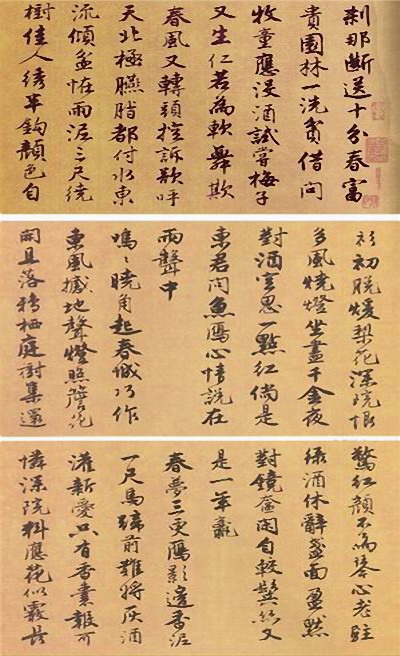 刹那斷送十分春富
貴園林一洗貧借問
牧童應没酒試嘗梅子
又生仁若為軟舞欺
春風又轉頭控訴欲呼
天北極臙脂都付水東
流傾盆怪雨泥三尺繞
樹佳人綉半鈎顔色自
衫初脱煖梨花深院恨
多風燒燈坐盡千金夜
對酒空思一點紅倘是
東君問魚鴈心情説在
雨聲中
嗚嗚曉角起春城巧作
東風撼地聲燈照簷花
開且落鴉棲庭樹集還
驚紅顔不為琴心老駐
綠酒休辭盞面盈默
對鏡奩閒自較鬢絲又
是一年
春夢三更鴈影邊香泥
一尺馬蹄前難將灰酒
灌新愛只有香囊報可
憐深院料應花似霰長